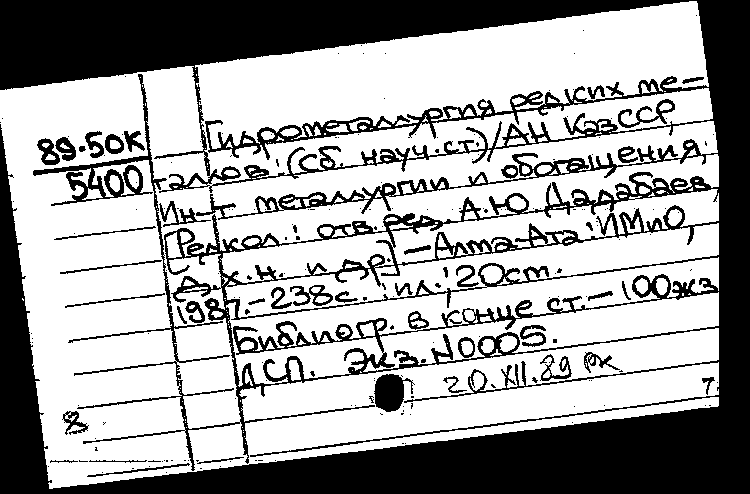 89-50К
5400
Гидрометаллургия редких ме-
таллов: (Сб. науч. ст.)/АН КазССР,
Ин-т металлургии и обогащения;
[Редкол.: отв. ред. А.Ю. Дадабаев,
д.х.н. и др.] - Алма-Ата: ИМиО,
1987. - 238с.: ил.; 20см.
Библиогр. в конце ст. - 100экз
ДСП. Экз. N0005.
20.XII.89
8
7.